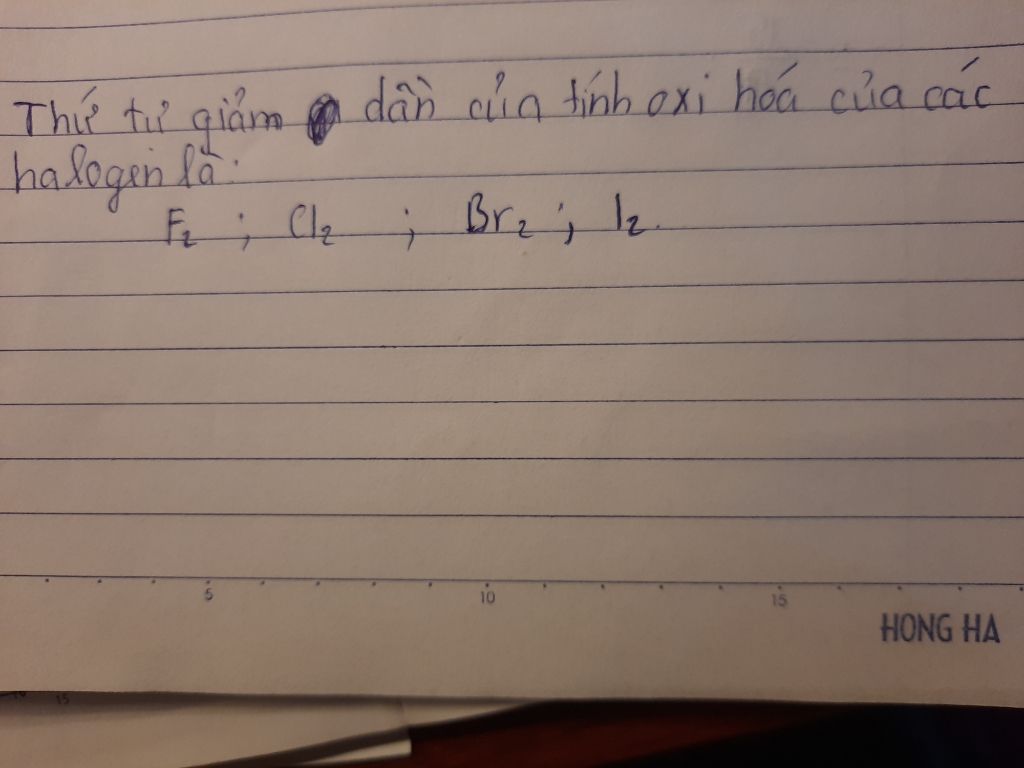 Thứ tự giảm dần của tính oxi hoá của các
halogen là:
F₂ ; Cl₂ ; Br₂ ; I₂.
5 10 15
HONG HA
15